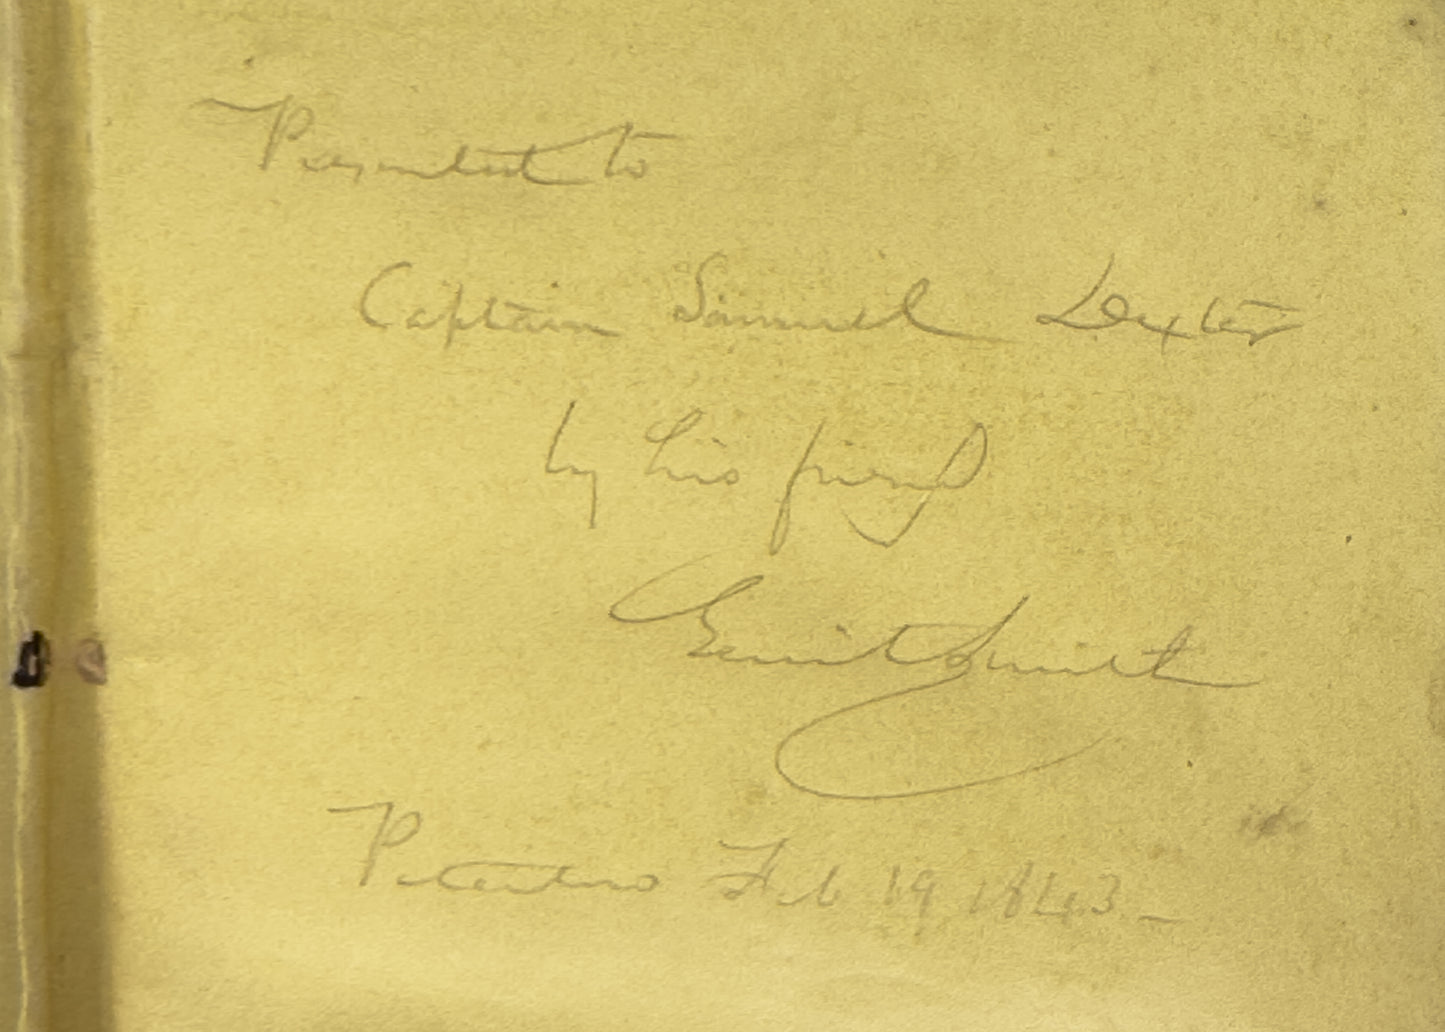 Presented to
Captain Samuel Dexter
by his friend
Gerrit Smith
Peterboro Feb 19 1843 _